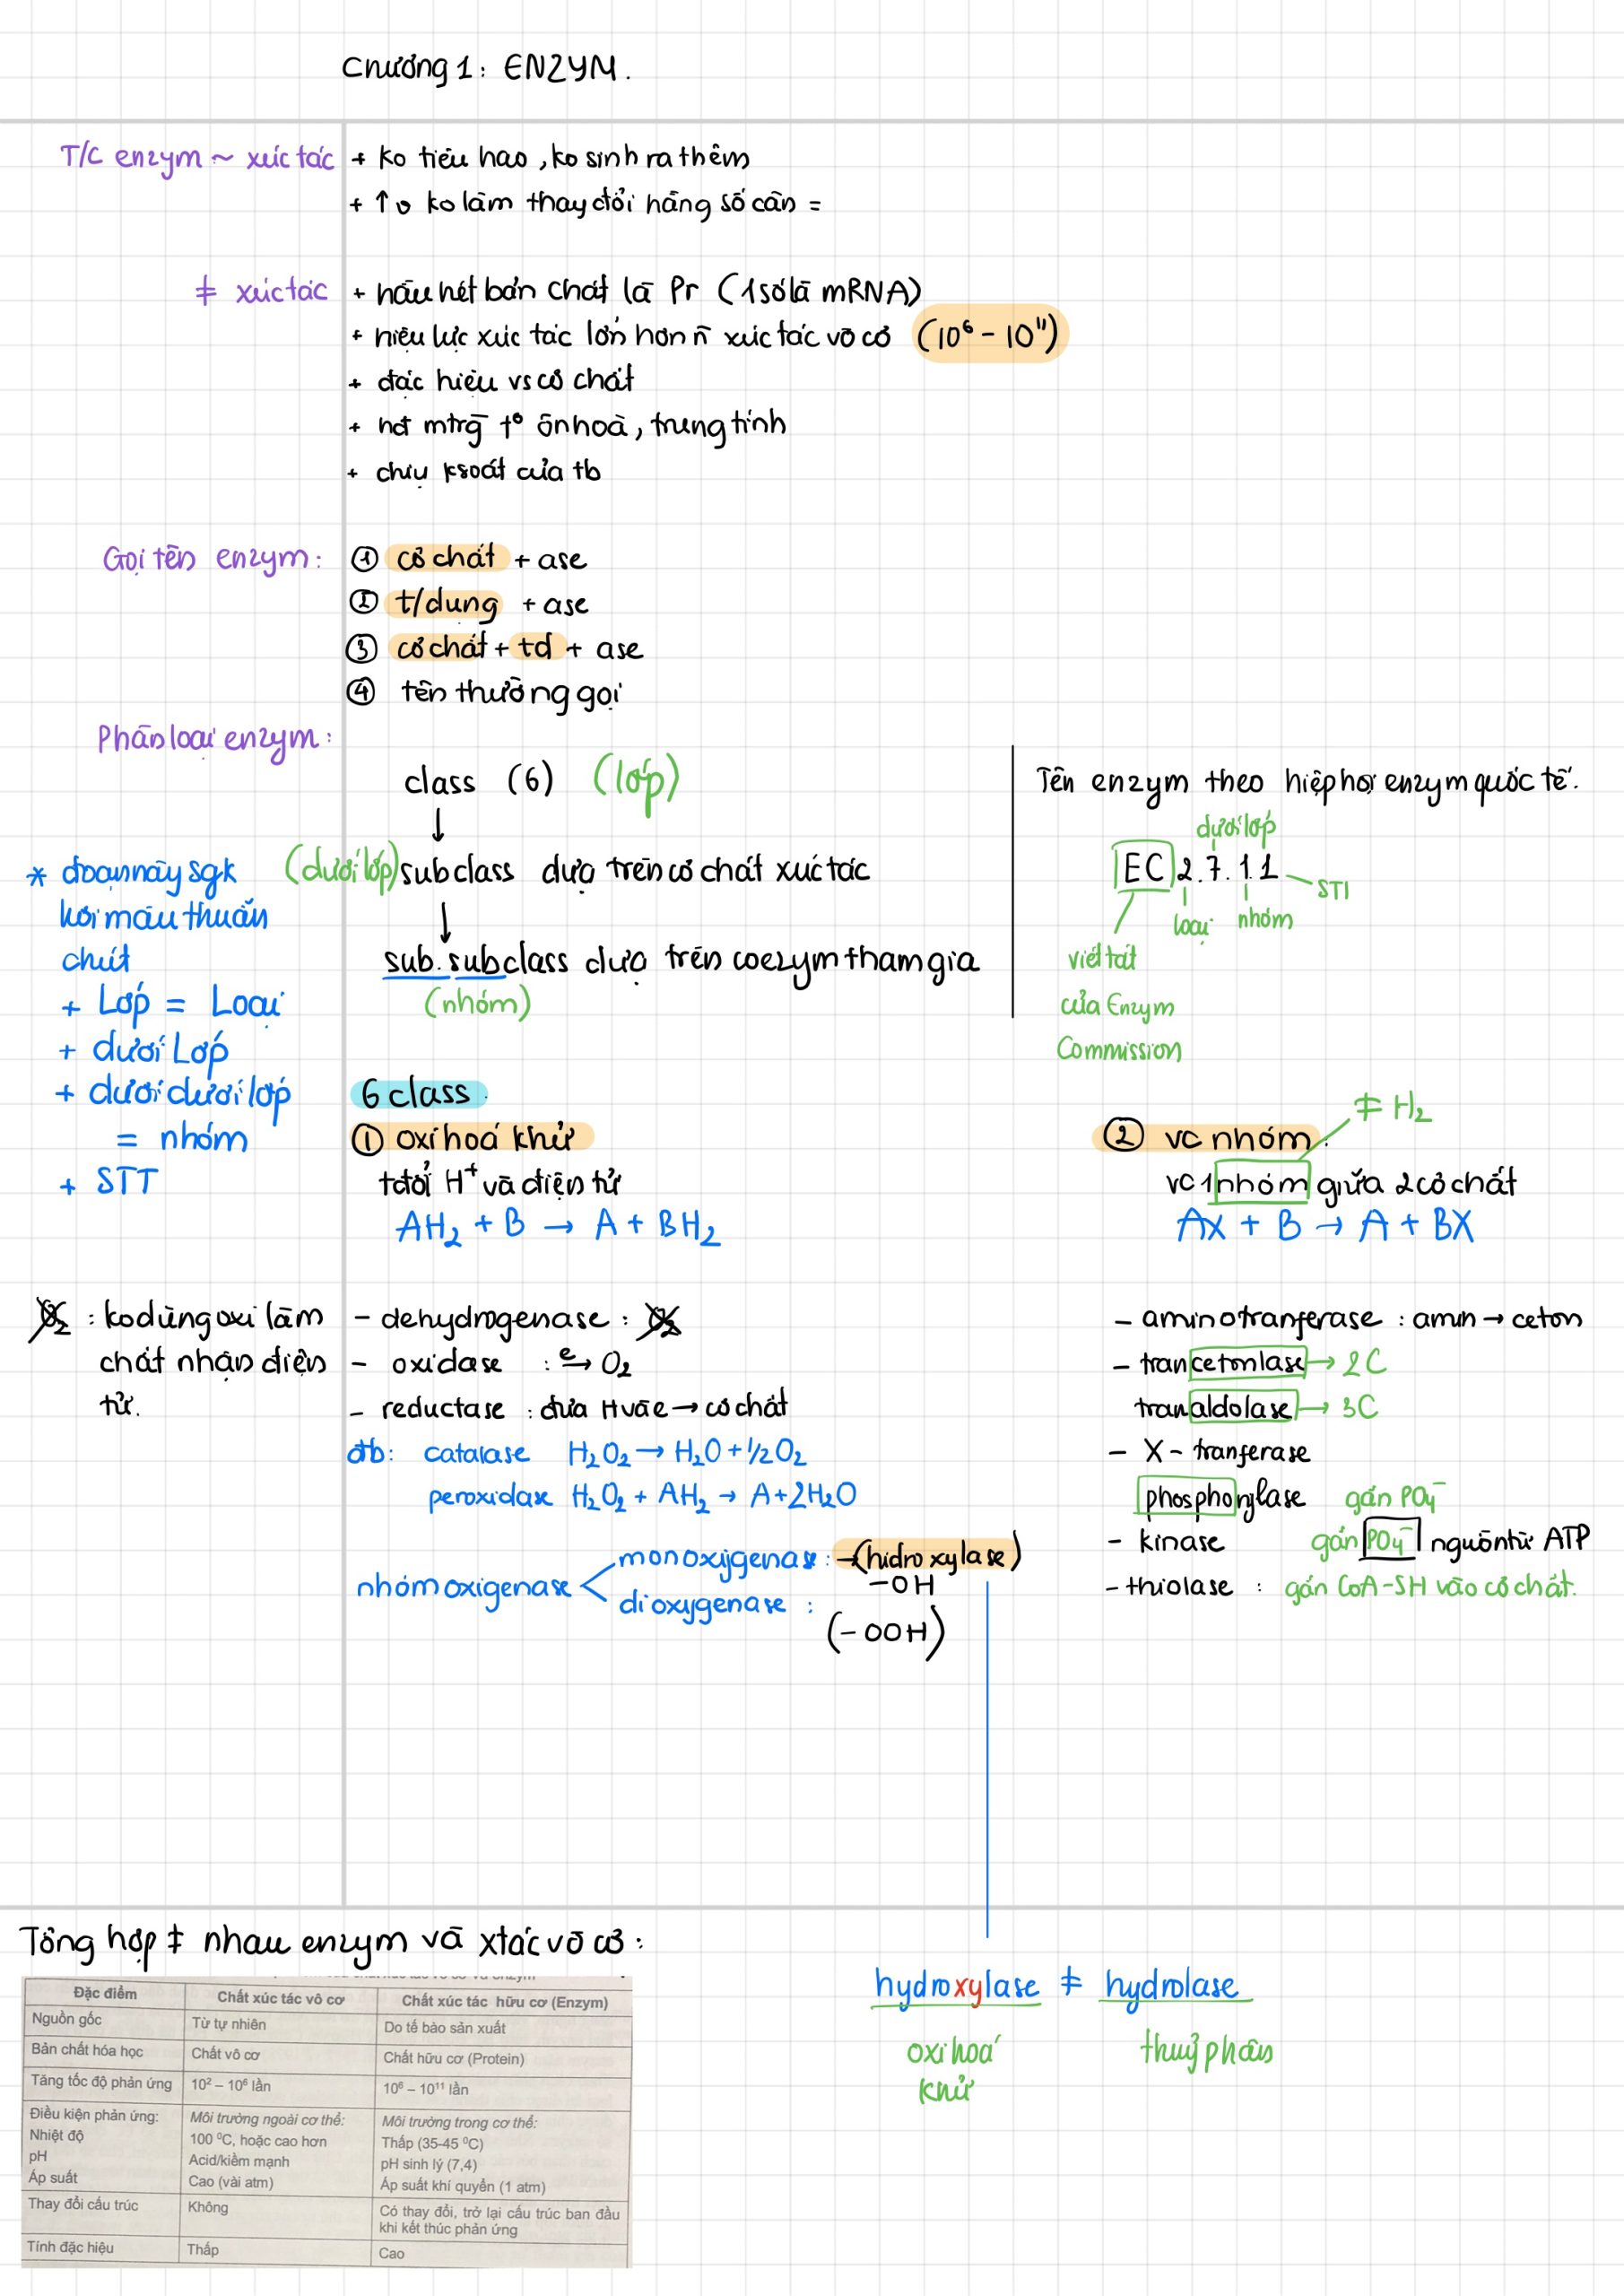 Chương 1: ENZYM.
T/C enzym ~ xúc tác
+ ko tiêu hao, ko sinh ra thêm
+ ↑v ko làm thay đổi hằng số cân =
≠ xúc tác
+ hầu hết bản chất là Pr (1 số là mRNA)
+ hiệu lực xúc tác lớn hơn n̄ xúc tác vô cơ (10⁶ - 10¹¹)
+ đặc hiệu vs cơ chất
+ hđ mtrg t° ôn hoà, trung tính
+ chịu ksoát của tb
Gọi tên enzym:
① cơ chất + ase
② t/dụng + ase
③ cơ chất + td + ase
④ tên thường gọi
Phân loại enzym:
class (6) (lớp)
↓
(dưới lớp) subclass dựa trên cơ chất xúc tác
↓
sub.subclass dựa trên coezym tham gia
(nhóm)
Tên enzym theo hiệp hội enzym quốc tế.
dưới lớp
EC 2.7.1.1
STT
loại nhóm
viết tắt
của Enzym
Commission
* đoạn này sgk
hơi mâu thuẫn
chút
+ Lớp = Loại
+ dưới Lớp
+ dưới dưới lớp
= nhóm
+ STT
6 class
① oxi hoá khử
tđổi H⁺ và điện tử
AH₂ + B → A + BH₂
≠ H₂
② vc nhóm:
vc 1 nhóm giữa 2 cơ chất
AX + B → A + BX
O₂ : ko dùng oxi làm
chất nhận điện
tử.
- dehydrogenase : O₂
- oxidase : e→ O₂
- reductase : đưa H và e → cơ chất
đb: catalase H₂O₂ → H₂O + 1/2 O₂
peroxidase H₂O₂ + AH₂ → A + 2H₂O
nhóm oxigenase
monoxygenase : → (hidroxylase)
-OH
dioxygenase :
(-OOH)
- aminotranferase : amin → ceton
- trancetonlase → 2C
tranaldolase → 3C
- X - tranferase
phosphorylase gắn PO₄⁻
- kinase gắn PO₄⁻ nguồn từ ATP
- thiolase : gắn CoA-SH vào cơ chất.
Tổng hợp ≠ nhau enzym và xtác vô cơ :
Đặc điểm Chất xúc tác vô cơ Chất xúc tác hữu cơ (Enzym)
Nguồn gốc Từ tự nhiên Do tế bào sản xuất
Bản chất hóa học Chất vô cơ Chất hữu cơ (Protein)
Tăng tốc độ phản ứng 10² – 10⁶ lần 10⁶ – 10¹¹ lần
Điều kiện phản ứng: Môi trường ngoài cơ thể: Môi trường trong cơ thể:
Nhiệt độ 100 ⁰C, hoặc cao hơn Thấp (35-45 ⁰C)
pH Acid/kiềm mạnh pH sinh lý (7,4)
Áp suất Cao (vài atm) Áp suất khí quyển (1 atm)
Thay đổi cấu trúc Không Có thay đổi, trở lại cấu trúc ban đầu
khi kết thúc phản ứng
Tính đặc hiệu Thấp Cao
hydroxylase ≠ hydrolase
oxi hoá thuỷ phân
khử